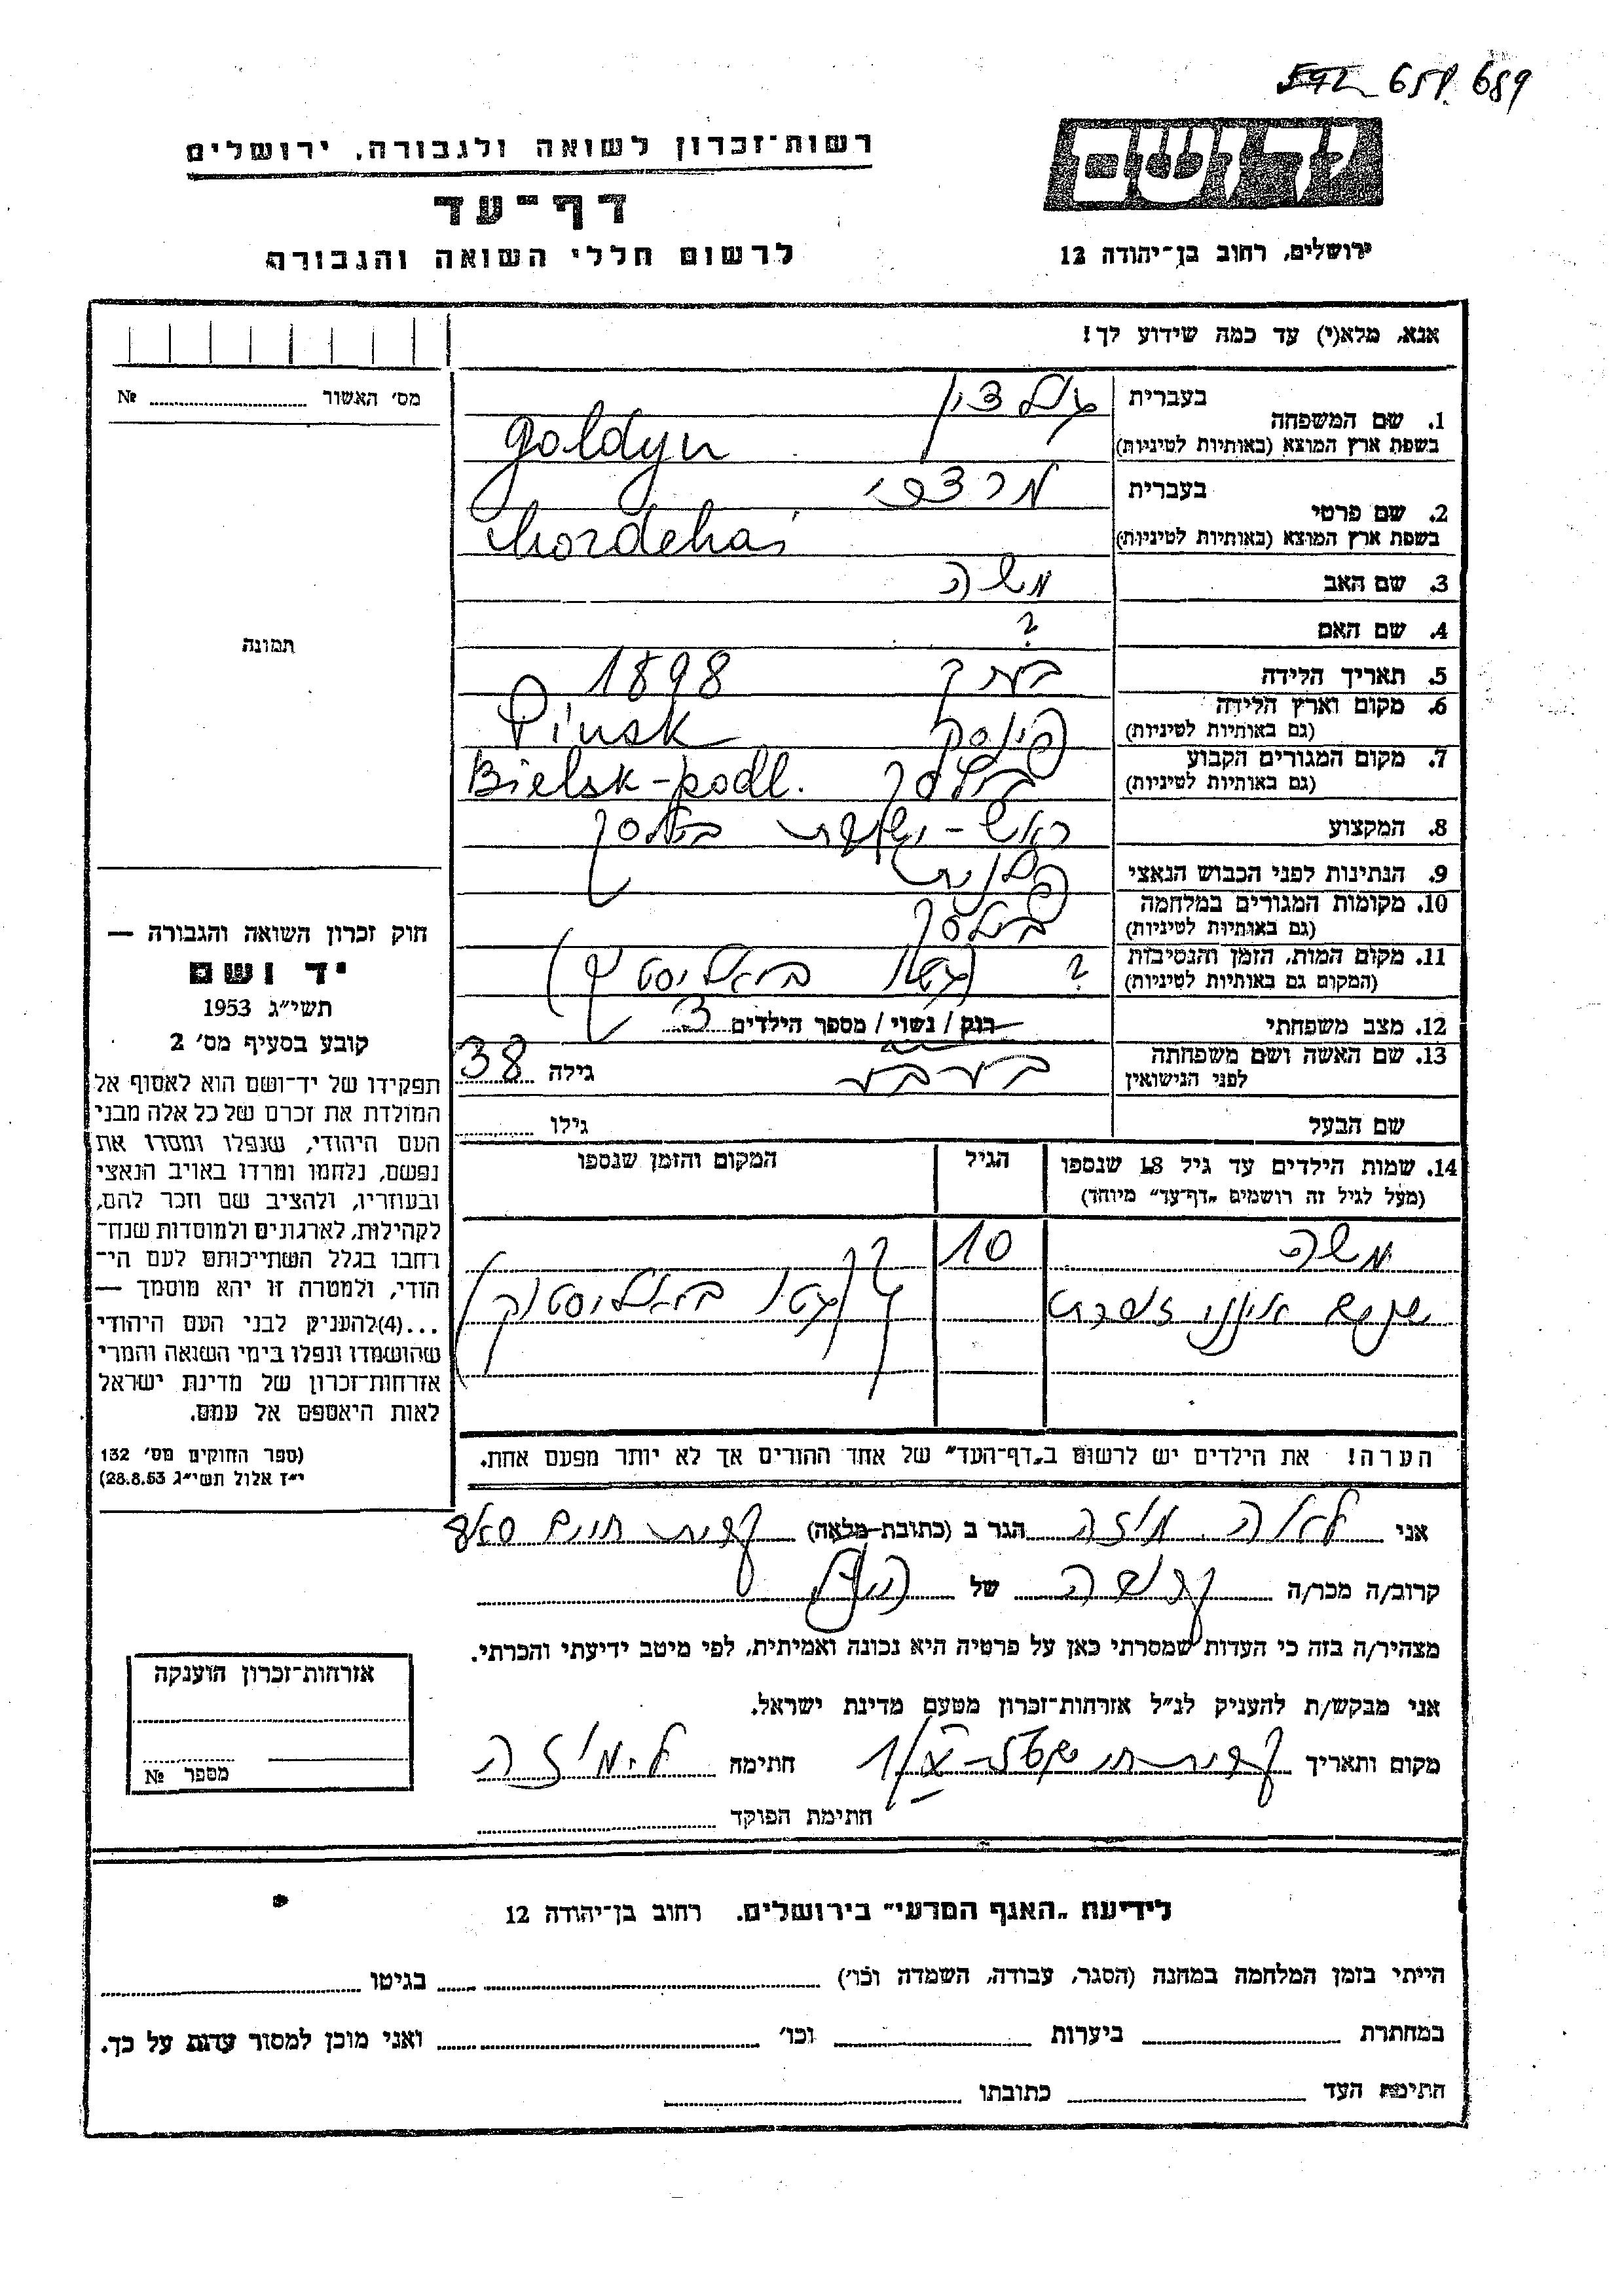 592 651 689
יד ושם
רשות־זכרון לשואה ולגבורה, ירושלים
דף־עד
לרשום חללי השואה והגבורה
ירושלים, רחוב בן־יהודה 12
אנא, מלא(י) עד כמה שידוע לך!
מס׳ האשור № 
1. שם המשפחה
בעברית גולדין
בשפת ארץ המוצא (באותיות לטיניות) Goldyn
2. שם פרטי
בעברית מרדכי
בשפת ארץ המוצא (באותיות לטיניות) Mordehai
3. שם האב משה
4. שם האם ?
5. תאריך הלידה בערך 1898
6. מקום וארץ הלידה
(גם באותיות לטיניות) פינסק Pinsk
7. מקום המגורים הקבוע
(גם באותיות לטיניות) בילסק Bielsk-podl.
8. המקצוע ראש-ישיבת בילסק
9. הנתינות לפני הכבוש הנאצי פולנית
10. מקומות המגורים במלחמה
(גם באותיות לטיניות) בילסק
11. מקום המות, הזמן והנסיבות
(המקום גם באותיות לטיניות) ? (גטו ביאליסטוק)
12. מצב משפחתי רוק / נשוי / מספר הילדים 3
13. שם האשה ושם משפחתה
לפני הנישואין גילה 38
שם הבעל גילו
14. שמות הילדים עד גיל 18 שנספו
(מעל לגיל זה רושמים „דף־עד״ מיוחד)
הגיל
המקום והזמן שנספו
משה 10
אינני זוכרת (גטו ביאליסטוק)
הערה! את הילדים יש לרשום ב„דף־העד״ של אחד ההורים אך לא יותר מפעם אחת.
תמונה
חוק זכרון השואה והגבורה —
יד ושם
תשי״ג 1953
קובע בסעיף מס׳ 2
תפקידו של יד־ושם הוא לאסוף אל
המולדת את זכרם של כל אלה מבני
העם היהודי, שנפלו ומסרו את
נפשם, נלחמו ומרדו באויב הנאצי
ובעוזריו, ולהציב שם וזכר להם,
לקהילות, לארגונים ולמוסדות שנח־
רחבו בגלל השתייכותם לעם הי־
הודי, ולמטרה זו יהא מוסמך —
...(4)להעניק לבני העם היהודי
שהושמדו ונפלו בימי השואה והמרי
אזרחות־זכרון של מדינת ישראל
לאות היאספם אל עמם.
(ספר החוקים מס׳ 132
י״ז אלול תשי״ג 28.8.53)
אני לאה מיזה הגר ב (כתובת מלאה) קרית חיים
קרוב/ה מכר/ה קרובה של
מצהיר/ה בזה כי העדות שמסרתי כאן על פרטיה היא נכונה ואמיתית, לפי מיטב ידיעתי והכרתי.
אני מבקש/ת להעניק לנ״ל אזרחות־זכרון מטעם מדינת ישראל.
מקום ותאריך חתימה ל. מיזה
חתימת הפוקד
אזרחות־זכרון הוענקה
מספר №
לידיעת „האגף המדעי״ בירושלים, רחוב בן־יהודה 12
הייתי בזמן המלחמה במחנה (הסגר, עבודה, השמדה וכו׳) בגיטו
במחתרת ביערות וכו׳ ואני מוכן למסור עדות על כך.
חתימת העד כתובתו